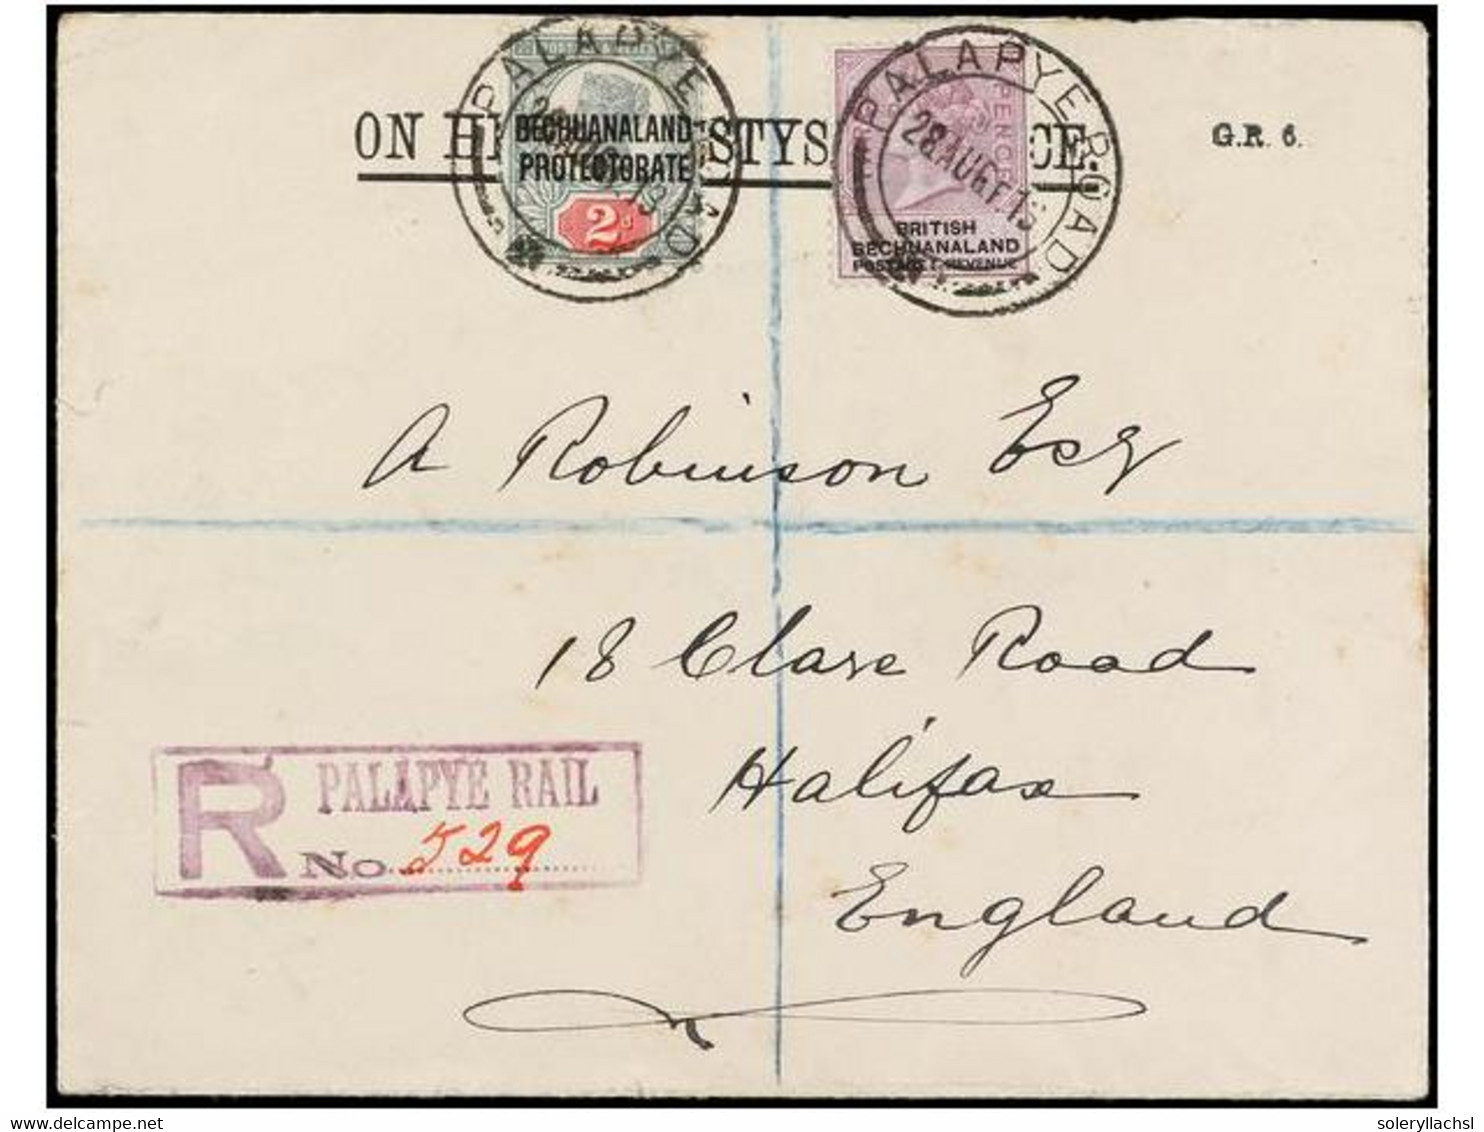 PALAPYE ROAD
PALAPYE ROAD
28 AUG 13
ON HI STYS CE.
G.R. 6.
BECHUANALAND
PROTECTORATE
2d
PENCE
BRITISH
BECHUANALAND
POSTAGE & REVENUE
A Robinson Esq
18 Clare Road
Halifax
England
R PALAPYE RAIL
No. 529
soleryllachsl
www.delcampe.net